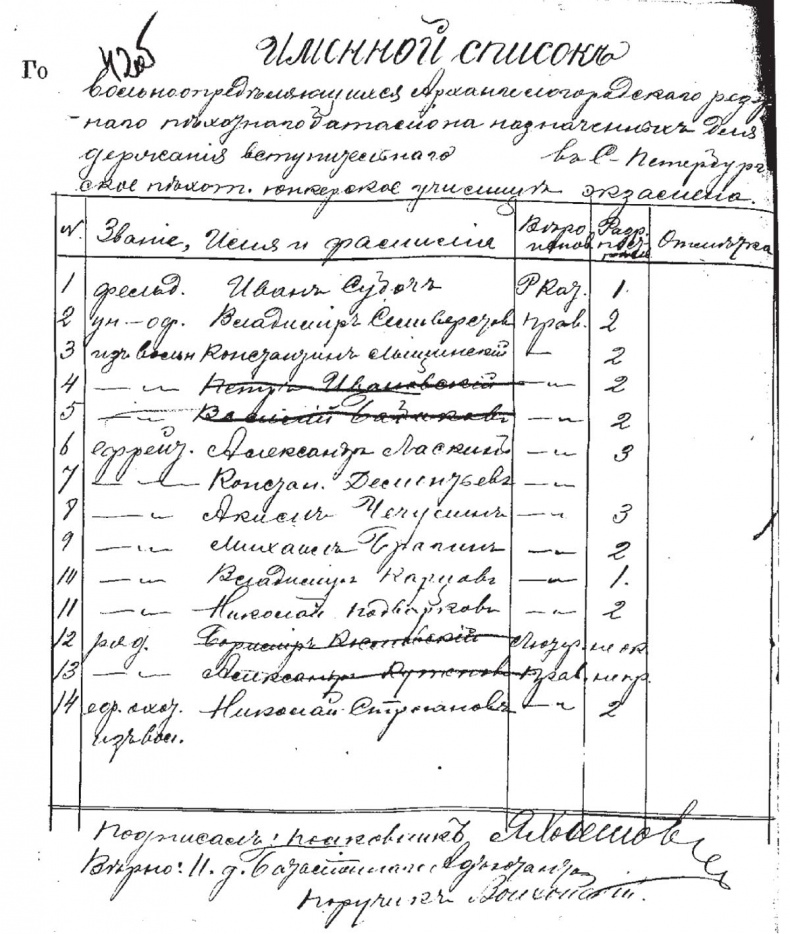 Го
420
Именной списокъ
вольноопредѣляющимся Архангелогородскаго резерв-
наго пѣхотнаго баталіона назначенныхъ для
держанія вступительнаго въ С-Петербург-
ское пѣхот. юнкерское училище экзамена.
№ Званіе, Имя и фамилія Вѣро испов. Разр. Отмѣтка
1 фельд. Иванъ Р Кат. 1.
2 ун-оф. Владиміръ Селиверстов прав. 2
3 изъ вольн Константинъ Мышинскій — 2
4 — „ Петръ Ивановскій — „ 2
5 — „ Василій — „ 2
6 ефрейт. Александръ Ласкинъ — „ 3
7 — „ Констан. Дементьевъ — „
8 — „ Акимъ Чечулинъ — „ 3
9 — „ Михаилъ — „ 2
10 — „ Владиміръ Карповъ — „ 1.
11 — „ Николай — „ 2
12 ряд. Лютер.
13 — „ Александръ прав.
14 еф. Николай Строгановъ — „ 2
изъ вол.
Подписалъ: полковникъ
Вѣрно: И. д. Баталіоннаго Адъютанта
Поручикъ